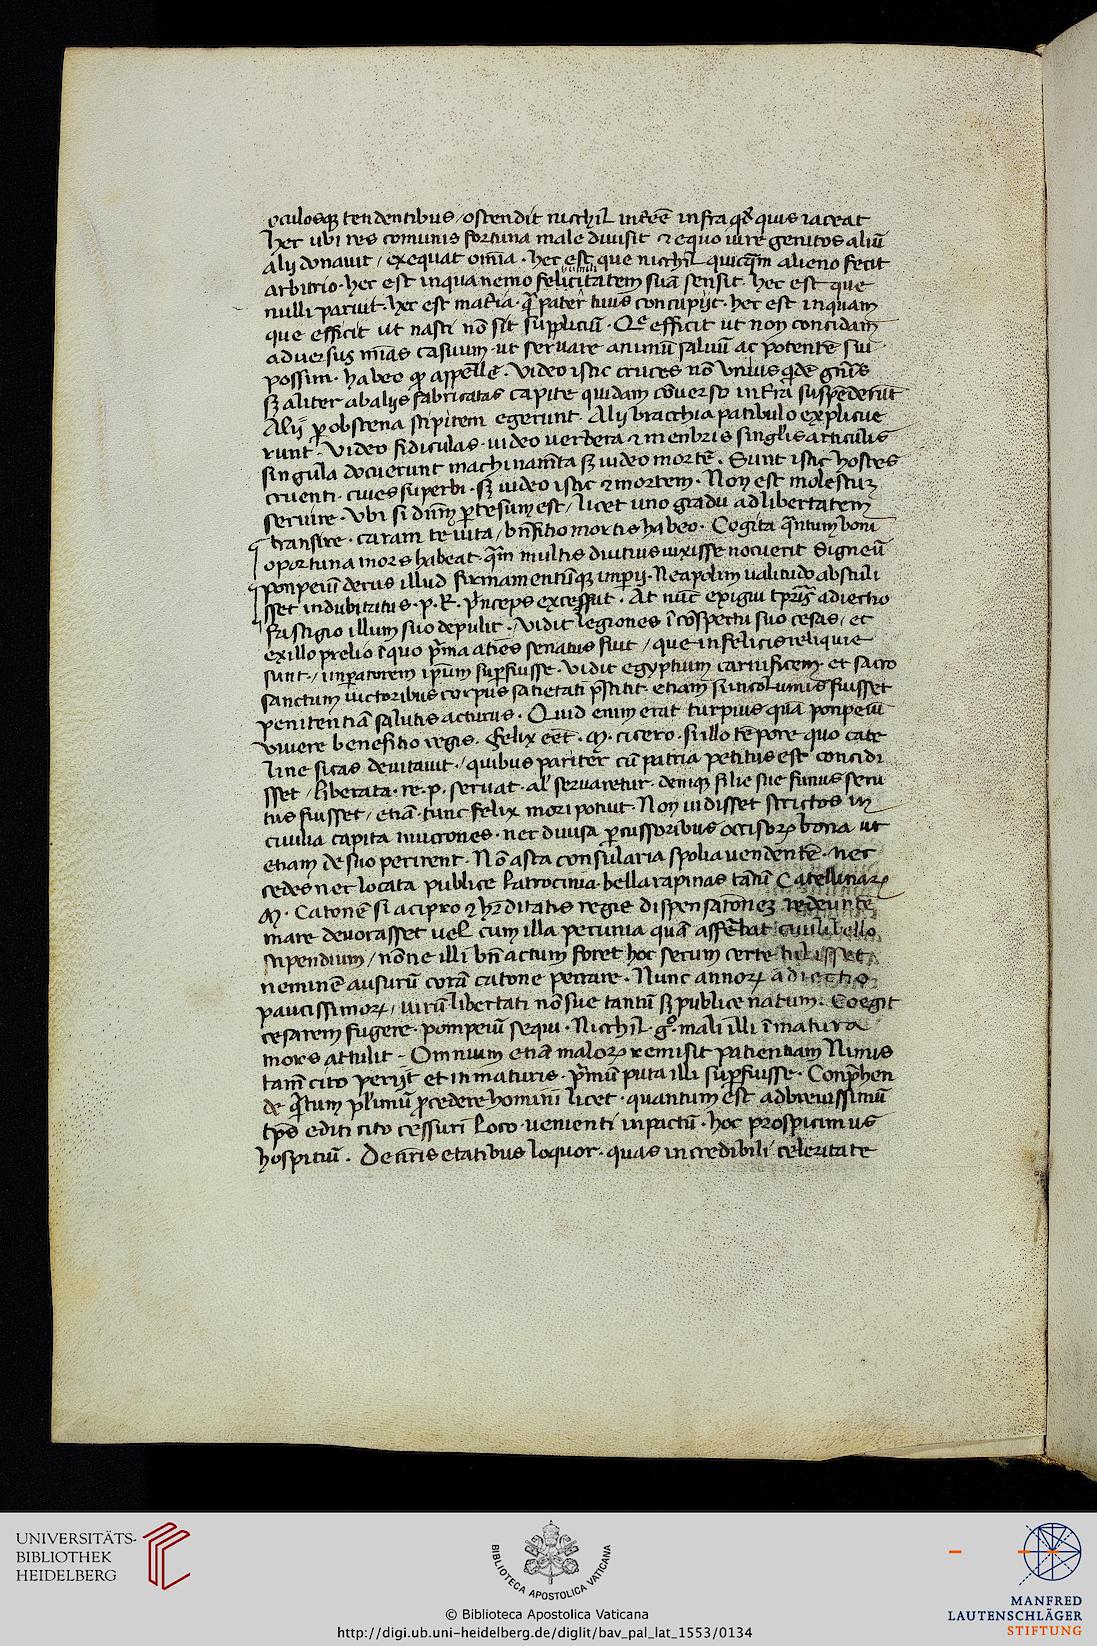 oculosqꝫ tendentibus / ostendit nicchil inesse infra qđ quis iaceat
hec ubi res comunis fortuna male divisit ⁊ equo iure genitos aliū
alij donavit / exequat om̄ia · hec est que nicchil quicq̄m alieno fecit
arbitrio · hec est in qua nemo felicitatem suā sensit · hec est que
nulli paruit · hec est maria · q̄ pater tuus concupijt · hec est inquam
que efficit ut nasci nō sit suppliciū · Qͤ efficit ut non concidam
adversus mīas casuum · ut servare animū salvū ac potentē sui
possim · habeo qđ appellē · Video istic cruces nō unius qͥdē gn̄is
sꝫ aliter ab alijs fabricatas capite quidam cōverso in t̄rā suspēderūt
Alij ꝑ obscena stipitem egerunt · Alij bracchia patibulo explicue
runt · Video fidiculas · video verbera ⁊ menbris singl̓is articulis
singula docuerunt machinam̄ta sꝫ video mortē · Sunt istic hostes
cruenti · cives superbi · sꝫ video istic ⁊ mortem · Non est molestuꝫ
servire · Vbi si dn̄m ꝑtesum est / licet uno gradu ad libertatem
transire · caram te vita / bn̄fitio mortis habeo · Cogita q̄ntum boni
oportuna mors habeat · q̄m multis diutius vixisse nocuerit Si gneū
ponpeiū decus illud firmamentūqꝫ imperij · Neapolim valitudo abstuli
sset indubitatus · p · R · p̄nceps excessut · At nūc exigui tp̄ris adiectio
fastigio illum suo depulit · / vidit legiones ī cōspectu suo cesas / et
ex illo prelio ī quo p̄ma aties senatus fuit / que infelicis reliquie
sunt · / inperatorem ip̄um suꝑfuisse · Vidit egyptium carnificem · et sacro
sanctum victoribus corpus satietati p̄stitit etiam si incolumis fuisset
penitentiā salutis acturus · Quid enim erat turpius quā ponpeiū
vivere benefitio regis · Felix eēt · M · cicero · si illo tēpore quo cate
line sicas devitavit · / quibus pariter cū patria petitus est concidi
sset / liberata · re · p · servat · al̓ servaretur · deniqꝫ filie sue funus secu
tus fuisset / etiā · tunc felix mori potuit · Non vidisset strictos in
civilia capita mucrones · nec divisa ꝑcussoribus occisoꝝ bona ut
etiam de suo perirent · Nō asta consularia spolia vendentē · nec
cedes nec locata publice latrocinia · bella rapinas tātū Catellinaꝝ
M · Catonē si a cipro ⁊ hr̄ditatis regie dispensatōneꝫ redeuntē
mare devorasset vel cum illa pecunia quā afferebat civili bello
stipendium / nōne illi bn̄ actum foret hoc secum certe tulisset
neminē ausurū corā catone peccare · Nunc annoꝝ adiectio
paucissimoꝝ / virū libertati nō sue tantū sꝫ publice natum · Coegit
cesarem fugere · pompeiū sequi · Nicchil gͦ mali illi īmatura
mors attulit – Omnium etiā maloꝝ remisit patientiam Nimis
tam̄ cito perijt et inmaturis · p̄mū puta illi suꝑfuisse · Conp̄hen
de q̄ntum pl̓imū ꝓcedere homini licet · quantum est ad brevissimū
tp̄s editi cito cessuri loco · venienti inpactū · hoc prospicimus
hospitiū · De nr̄is etatibus loquor · quas incredibili celeritate
UNIVERSITÄTS-
BIBLIOTHEK
HEIDELBERG
BIBLIOTECA APOSTOLICA VATICANA
© Biblioteca Apostolica Vaticana
http://digi.ub.uni-heidelberg.de/diglit/bav_pal_lat_1553/0134
MANFRED
LAUTENSCHLÄGER
STIFTUNG